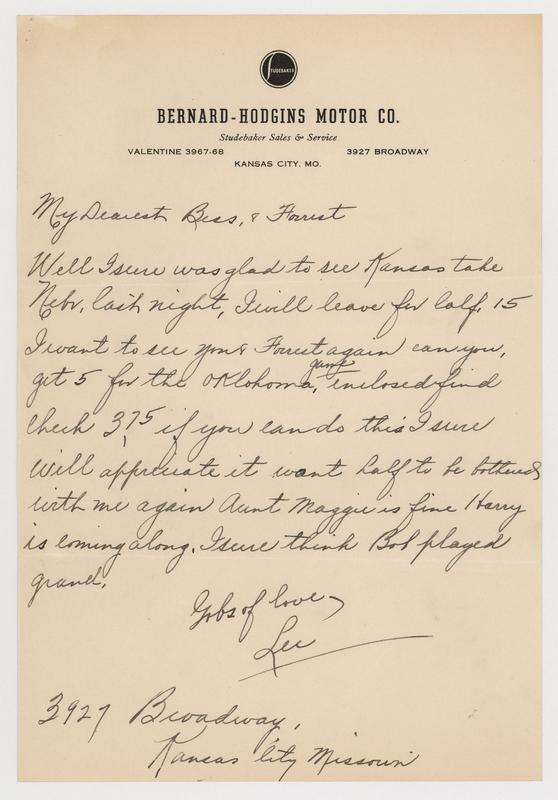 STUDEBAKER
BERNARD-HODGINS MOTOR CO.
Studebaker Sales & Service
VALENTINE 3967-68 3927 BROADWAY
KANSAS CITY, MO.
My Dearest Bess, & Forrest
Well I sure was glad to see Kansas take
Nebr, last night, I will leave for Calf, 15
I want to see you & Forrest again can you,
game
get 5 for the Oklohoma, inclosed find
check 3,75 if you can do this I sure
Will appreciate it want half to be bothered
with me again Aunt Maggie is fine Harry
is coming along. I sure think Bob played
grand,
Gobs of love
Lee
3927 Broadway,
Kansas City Missouri